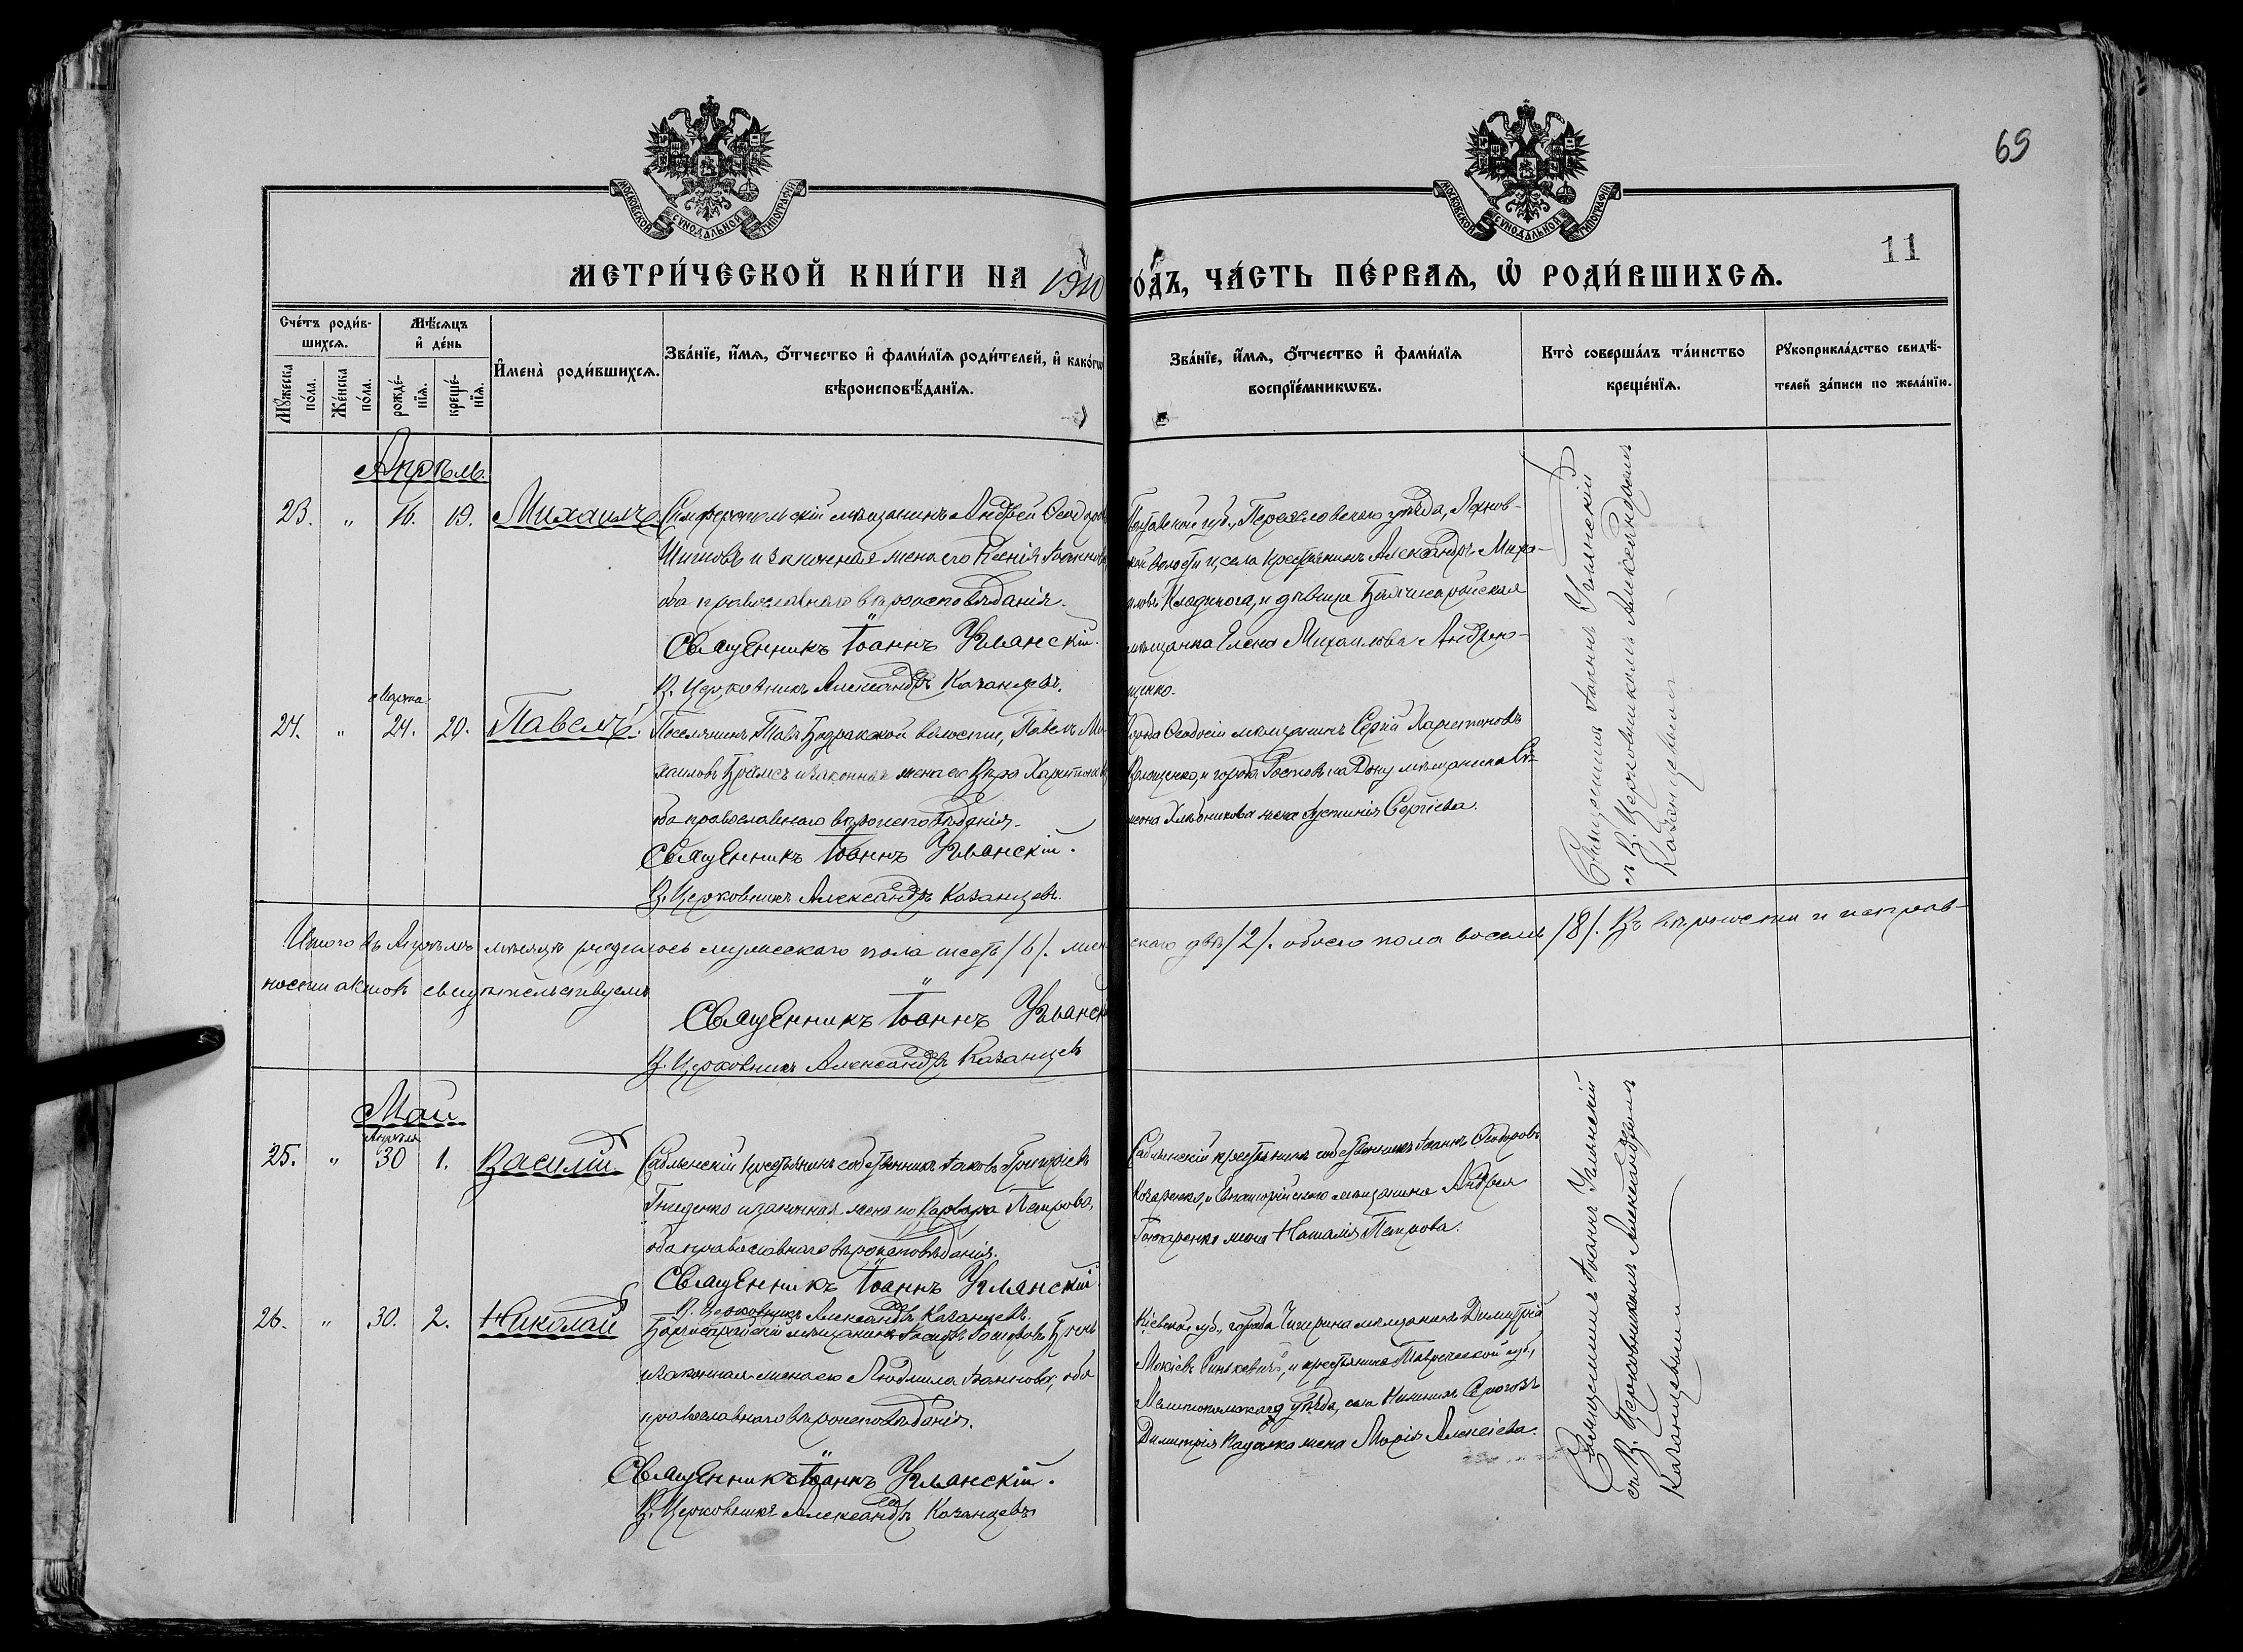 69
МОСКОВСКОЙ СѴНОДАЛЬНОЙ ТИПОГРАФІИ
МОСКОВСКОЙ СѴНОДАЛЬНОЙ ТИПОГРАФІИ
11
МЕТРИ́ЧЕСКОЙ КНИ́ГИ НА 1910 ГО́ДЪ, ЧА́СТЬ ПЕ́РВАѦ, Ѽ РОДИ́ВШИХСѦ.
Сче́тъ роди́в-
шихсѧ.
Мꙋжеска по́ла.
Же́нска по́ла.
Мѣ́сѧцъ
и҆ де́нь
рожде́-
нїѧ.
креще́-
нїѧ.
И҆мена̀ роди́вшихсѧ.
Зва́нїе, и҆́мѧ, ѻ҆́тчество и҆ фами́лїѧ роди́телей, и҆ како́гѡ
вѣроисповѣ́данїѧ.
Зва́нїе, и҆́мѧ, ѻ҆́тчество и҆ фами́лїѧ
воспрїе́мникѡвъ.
Кто̀ соверша́лъ та́инство
креще́нїѧ.
Рꙋкоприкла́дство свидѣ́-
телей за́писи по жела́нїю.
Апрѣль.
23. " 16. 19. Михаилъ. Симферопольскій мѣщанинъ Андрей Ѳеодоровъ
и законная жена его Ксенія Іоаннова
оба православнаго вѣроисповѣданія.
Священникъ Іоаннъ Уманскій.
В. Церковникъ Александръ Казанцевъ.
Полтавской губ., Переяславскаго уѣзда,
волости и села крестьянинъ Александръ Миха-
иловъ и дѣвица Бахчисарайская
мѣщанка Елена Михаилова Андрю-
щенко.
Священникъ Іоаннъ Уманскій
съ В. Церковникомъ Александромъ
Казанцевымъ
Марта
24. " 24. 20. Павелъ. Поселянинъ Тавр. волости, Павелъ Ми-
хаиловъ и законная жена его Вѣра Харитонова
оба православнаго вѣроисповѣданія.
Священникъ Іоаннъ Уманскій.
В. Церковникъ Александръ Казанцевъ.
города Ѳеодосіи мѣщанинъ Сергій Харитоновъ
и города Ростова на Дону мѣщанина Си-
меона Хлѣбникова жена Іустинія Сергіева.
Итого въ Апрѣлѣ мѣсяцѣ родилось мужескаго пола шесть /6/. женскаго двѣ /2/. обоего пола восемь /8/. Въ вѣрности и исправ-
ности актовъ свидѣтельствуемъ
Священникъ Іоаннъ Уманскій
В. Церковникъ Александръ Казанцевъ
Май
Апрѣля
25. " 30 1. Василій Саблынскій крестьянинъ собственникъ Іаковъ Григоріевъ
Гниденко и законная жена его Варвара Петрова,
оба православнаго вѣроисповѣданія.
Священникъ Іоаннъ Уманскій
В. Церковникъ Александръ Казанцевъ.
Саблынскій крестьянинъ собственникъ Іоаннъ Ѳеодоровъ
и Евпаторійскаго мѣщанина Андрея
жена Наталія Петрова.
Священникъ Іоаннъ Уманскій
съ В. Церковникомъ Александромъ
Казанцевымъ
26. " 30. 2. Николай Бахчисарайскій мѣщанинъ Іосифъ Іосифовъ
и законная жена его Людмила Іоаннова, оба
православнаго вѣроисповѣданія.
Священникъ Іоаннъ Уманскій.
В. Церковникъ Александръ Казанцевъ
Кіевской губ., города Чигирина мѣщанинъ Димитрій
Мокіевъ Синькевичъ, и крестьянина Таврической губ.,
Мелитопольскаго уѣзда, села Нижнихъ Сѣрогозъ
Димитрія жена Марія Алексіева.